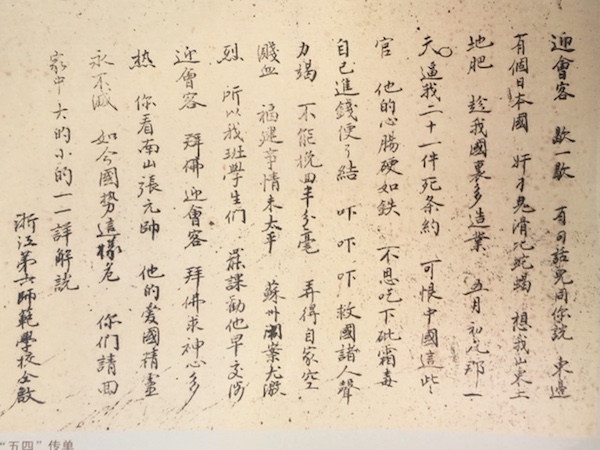 迎會客 歇一歇 有句話兒同你說 東邊
有個日本國 奸刁鬼滑比蛇蝎 想我山東土
地肥 趁我國裏多造業 五月初九那一
天 逼我二十一件死条約 可恨中國這些
官 他的心腸硬如鉄 不思吃下砒霜毒
自己進錢便了結 吓 吓 吓 救國諸人聲
力竭 不能挽回半分毫 弄得自家空
濺血 福建事情未太平 蘇州閙案尤激
烈 所以我班學生們 罷課勸他早交涉
迎會客 拜佛 迎會客 拜佛求神心多
热 你看南山張元帥 他的爱國精靈
永不滅 如今國勢這樣危 你們請回
家中 大的小的一一詳解說
浙江第六師範學校仝啟
“五四”传单